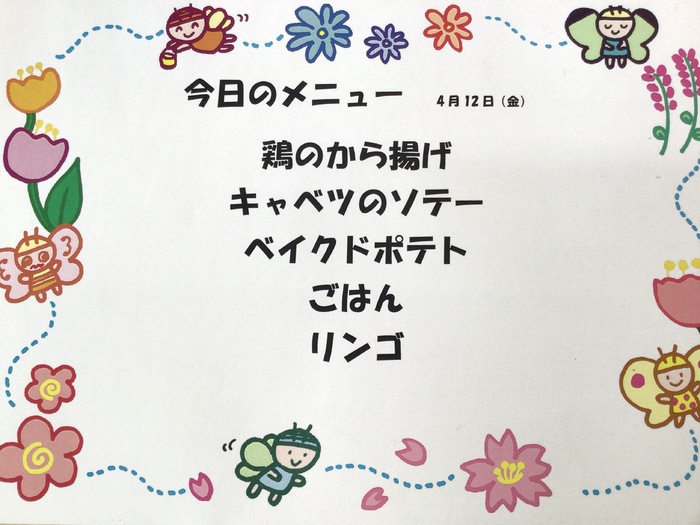 今日のメニュー 4月12日(金)
鶏のから揚げ
キャベツのソテー
ベイクドポテト
ごはん
リンゴ